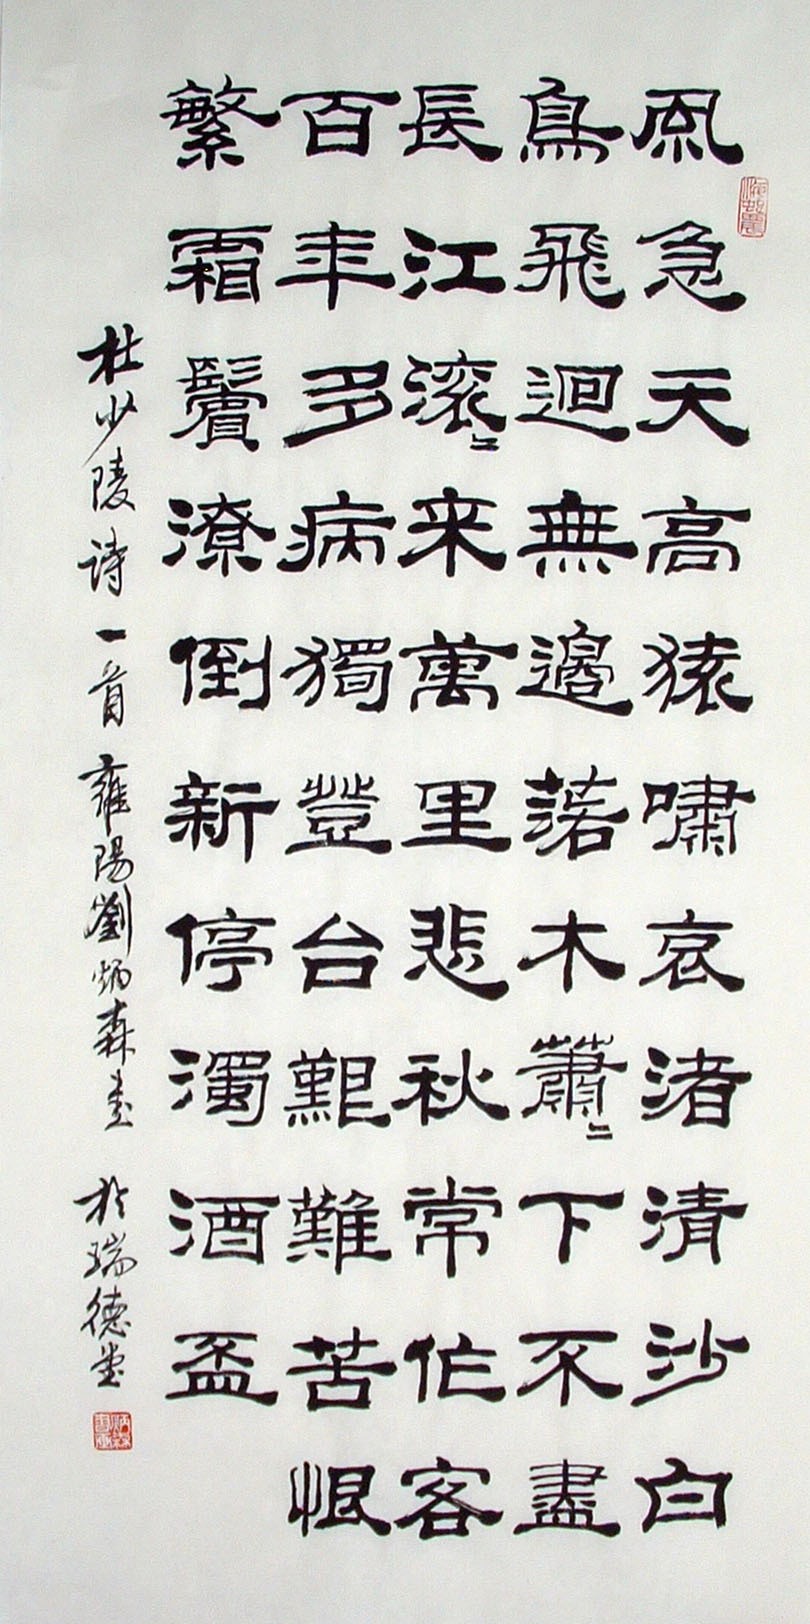 風急天高猿嘯哀渚清沙白
鳥飛迴無邊落木蕭〻下不盡
長江滚〻来萬里悲秋常作客
百年多病獨登台艱難苦恨
繁霜鬢潦倒新停濁酒盃
杜少陵诗一首 雍陽劉炳森書 於瑞德堂